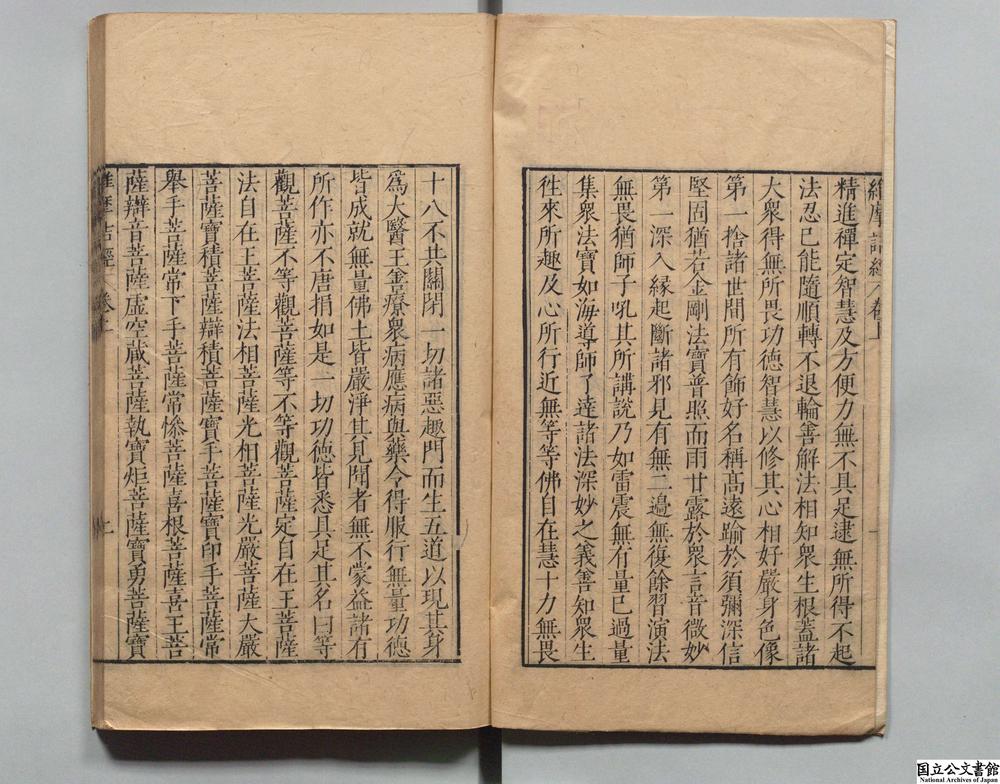 維摩詰經 卷上
精進禪定智慧及方便力無不具足逮無所得不起
法忍已能隨順轉不退輪善解法相知衆生根蓋諸
大衆得無所畏功德智慧以修其心相好嚴身色像
第一捨諸世間所有飾好名稱髙遠踰於須彌深信
堅固猶若金剛法寶普照而雨甘露於衆言音微妙
第一深入縁起斷諸邪見有無二邊無復餘習演法
無畏猶師子吼其所講說乃如雷震無有量已過量
集衆法寶如海導師了達諸法深妙之義善知衆生
徃來所趣及心所行近無等等佛自在慧十力無畏
十八不共關閉一切諸惡趣門而生五道以現其身
爲大醫王善療衆病應病與藥令得服行無量功德
皆成就無量佛土皆嚴淨其見聞者無不蒙益諸有
所作亦不唐捐如是一切功德皆悉具足其名曰等
觀菩薩不等觀菩薩等不等觀菩薩定自在王菩薩
法自在王菩薩法相菩薩光相菩薩光嚴菩薩大嚴
菩薩寶積菩薩辯積菩薩寶手菩薩寶印手菩薩常
舉手菩薩常下手菩薩常慘菩薩喜根菩薩喜王菩
薩辯音菩薩虛空藏菩薩執寶炬菩薩寶勇菩薩寶
維摩詰經 卷上
国立公文書館
National Archives of Japan